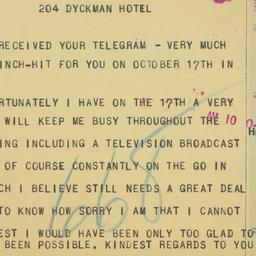 204 DYCKMAN HOTEL
RECEIVED YOUR TELEGRAM - VERY MUCH
INCH-HIT FOR YOU ON OCTOBER 17TH IN
RTUNATELY I HAVE ON THE 17TH A VERY
WILL KEEP ME BUSY THROUGHOUT THE
10
ING INCLUDING A TELEVISION BROADCAST
OF COURSE CONSTANTLY ON THE GO IN
CH I BELIEVE STILL NEEDS A GREAT DEAL
TO KNOW HOW SORRY I AM THAT I CANNOT
EST I WOULD HAVE BEEN ONLY TOO GLAD TO
BEEN POSSIBLE. KINDEST REGARDS TO YOU
668